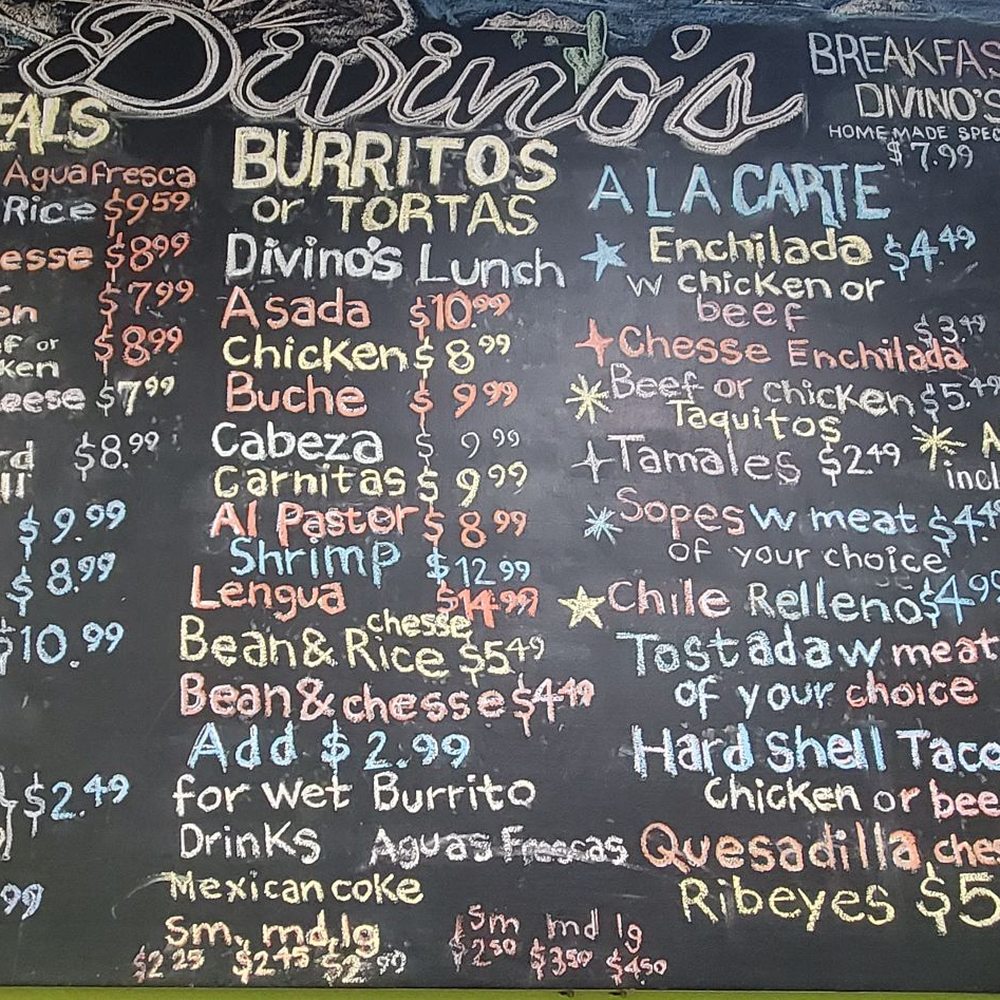 Divino's
EALS
Agua fresca
Rice $9.59
esse $8.99
en $7.99
ef or
ken $8.99
eese $7.99
rd $8.99
ll
$9.99
$8.99
$10.99
$2.49
99
BURRITOS
or TORTAS
Divino's Lunch
Asada $10.99
Chicken $8.99
Buche $9.99
Cabeza $9.99
Carnitas $9.99
Al Pastor $8.99
Shrimp $12.99
Lengua $14.99
chesse
Bean & Rice $5.49
Bean & chesse $4.49
Add $2.99
for wet Burrito
Drinks Aguas Frescas
Mexican coke
Sm. md. lg
$2.25 $2.45 $2.99
Sm md lg
$2.50 $3.50 $4.50
BREAKFAS
DIVINO'S
HOME MADE SPEC
$7.99
A LA CARTE
Enchilada $4.49
w chicken or
beef
$3.49
Chesse Enchilada
Beef or chicken $5.49
Taquitos
Tamales $2.49
A
incl
Sopes w meat $4.4
of your choice
Chile Relleno $4.99
Tostada w meat
of your choice
Hard Shell Taco
Chicken or bee
Quesadilla ches
Ribeyes $5